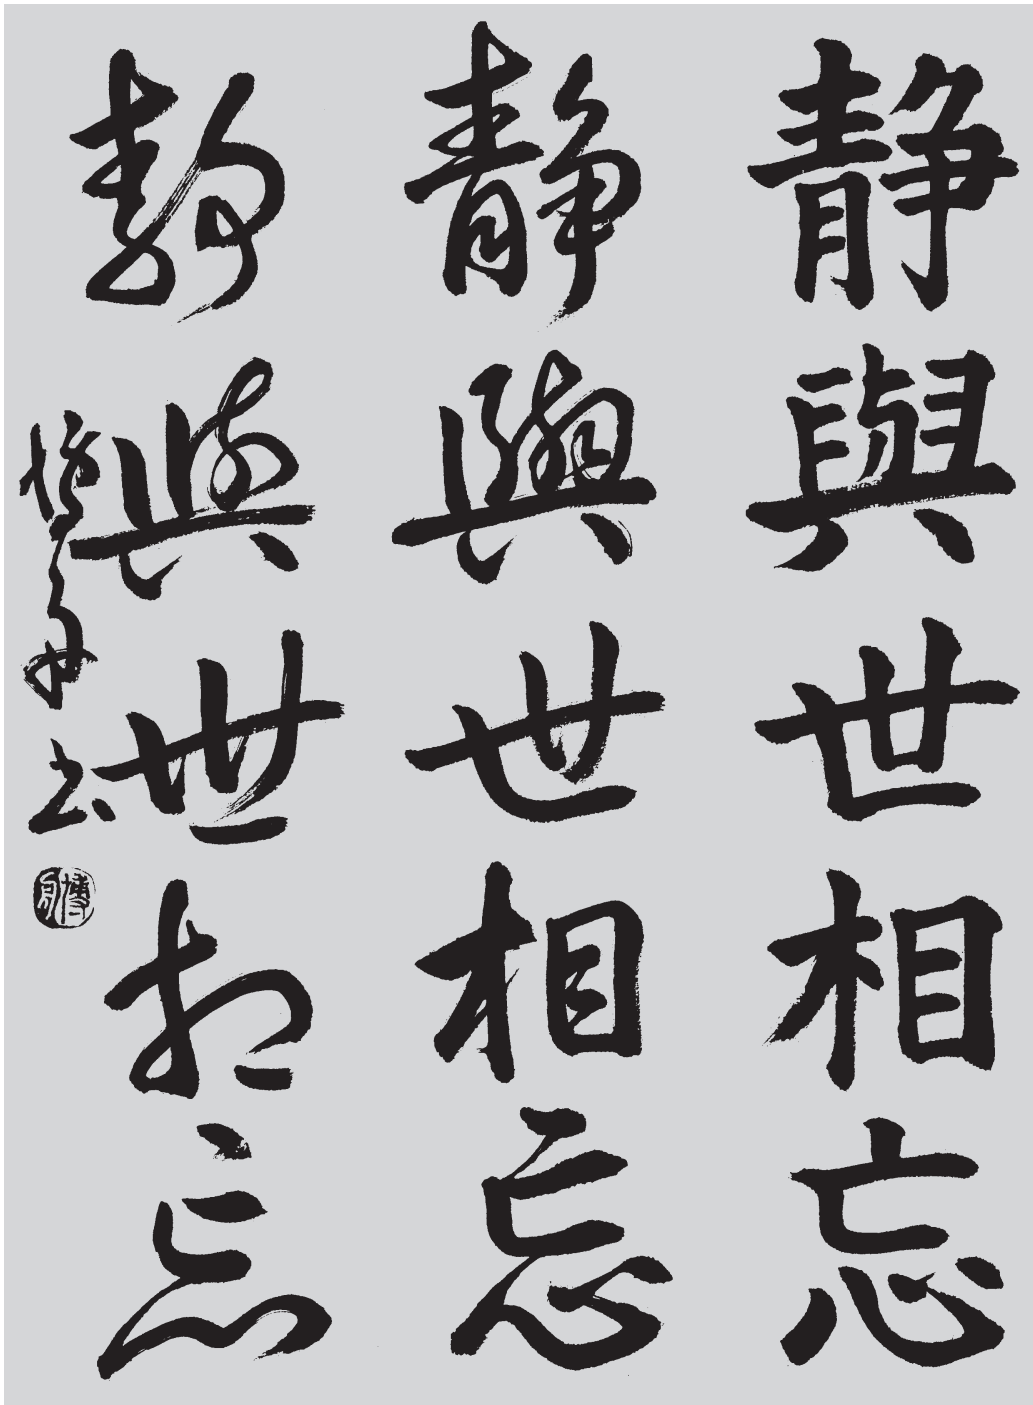 静與世相忘
静與世相忘
静與世相忘
博舟书